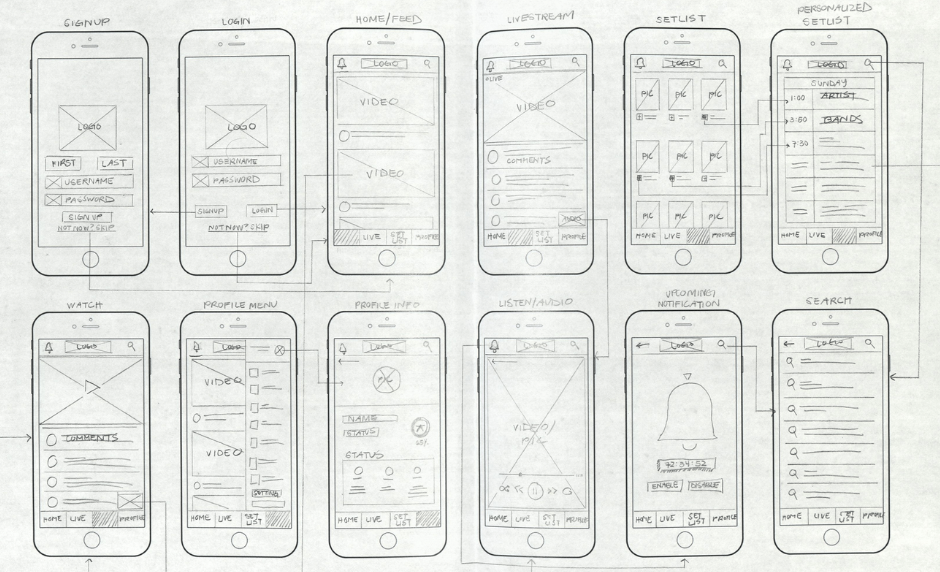 SIGNUP
LOGO
FIRST LAST
USERNAME
PASSWORD
SIGN UP
NOT NOW? SKIP
LOGIN
LOGO
USERNAME
PASSWORD
SIGNUP LOGIN
NOT NOW? SKIP
HOME/FEED
LOGO
VIDEO
VIDEO
LIVE SET LIST PROFILE
LIVESTREAM
LOGO
LIVE
VIDEO
COMMENTS
AUDIO
HOME SET LIST PROFILE
SETLIST
LOGO
PIC PIC PIC
PIC PIC PIC
PIC PIC PIC
HOME LIVE PROFILE
PERSONALIZED
SETLIST
LOGO
SUNDAY
1:00 ARTIST
BANDS
7:30
HOME LIVE PROFILE
WATCH
LOGO
COMMENTS
HOME LIVE PROFILE
PROFILE MENU
LOGO
VIDEO
VIDEO
SETTING
HOME LIVE SET LIST
PROFILE INFO
LOGO
PIC
NAME
STATUS
STATUS
HOME LIVE SET LIST PROFILE
LISTEN/AUDIO
LOGO
VIDEO/
PIC
HOME LIVE SET LIST PROFILE
UPCOMING/
NOTIFICATION
LOGO
72:34:52
ENABLE DISABLE
HOME LIVE SET LIST PROFILE
SEARCH
LOGO
HOME LIVE SET LIST PROFILE